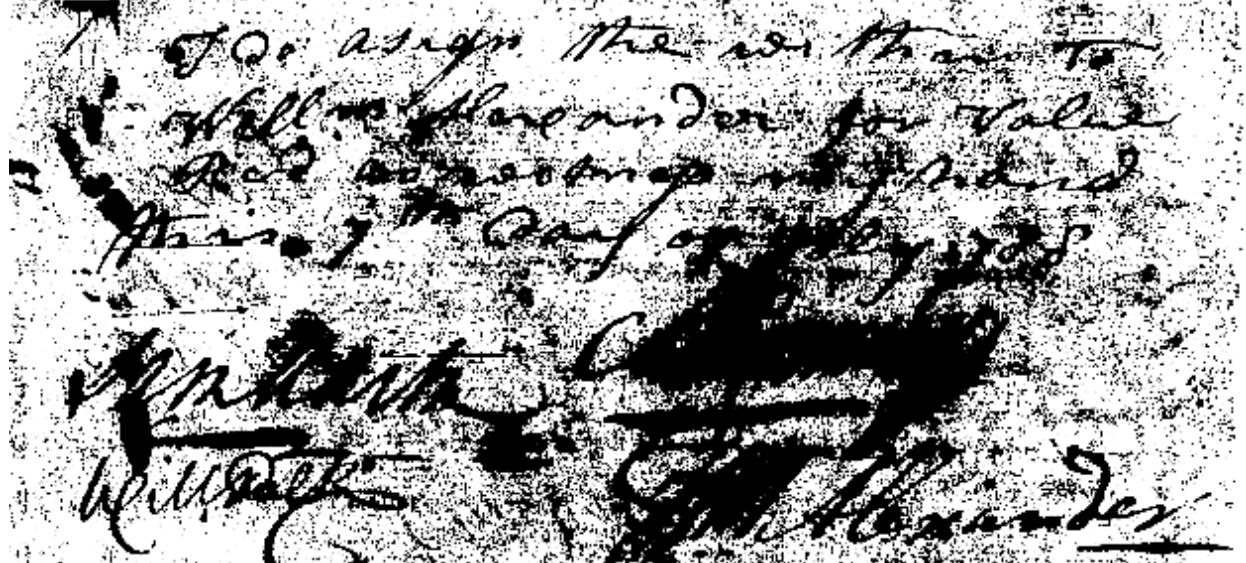 I do asign the within to
Will.m Alexander for Value
Recd as witness my hand
this 7th Day of 1788
Will Polk
Alexander